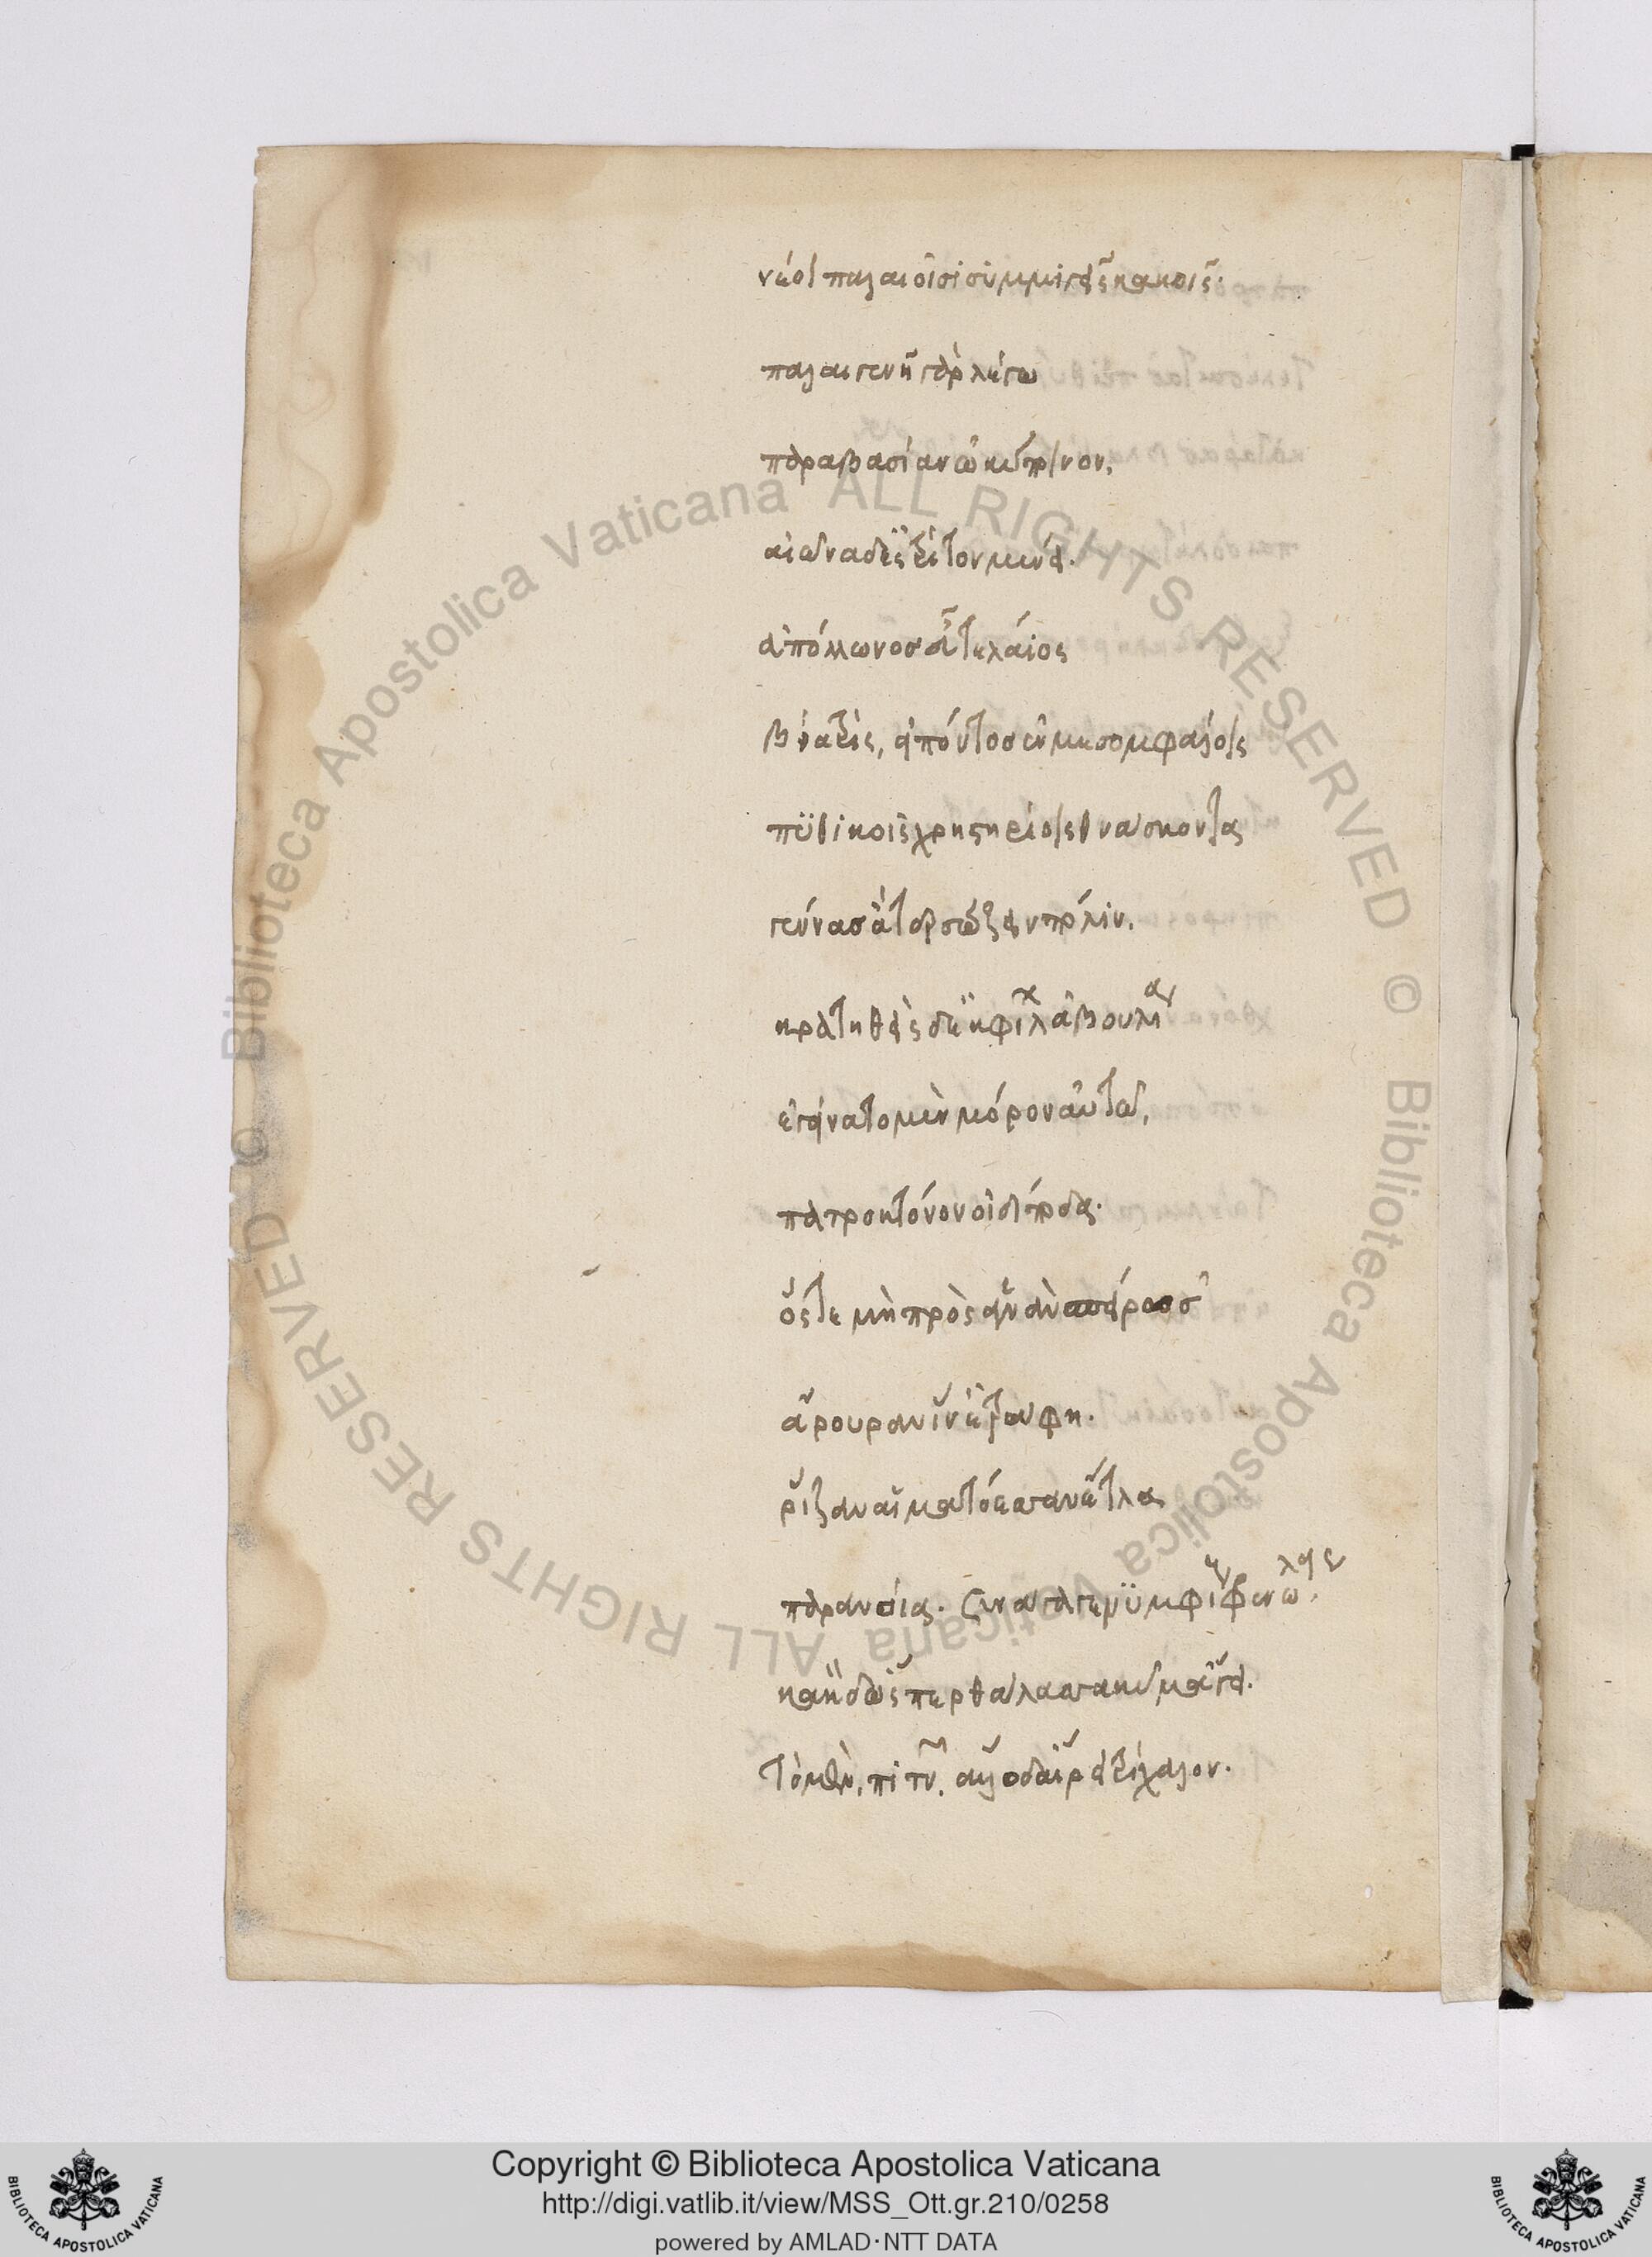 νέοι παλαιοῖσι συμμιγεῖς κακοῖς.
παλαιγενῆ γὰρ λέγω
παραβασίαν ὠκύποινον,
αἰῶνα δ' ἐς τρίτον μένει.
ἀπόλλωνος εὖτε λάϊος
βίᾳ τρὶς, εἰπόντος ἐν μεσομφάλοις
πυθικοῖς χρηστηρίοις θνάσκοντας
γέννας ἄτερ σώζειν πόλιν.
κρατηθεὶς δ' ἐκ φίλων ἀβουλίαν
ἐγείνατο μὲν μόρον αὑτῷ,
πατροκτόνον οἰδιπόδα.
ὅστε μὴ πρὸς ἁγνὰν σπείρας
ἄρουραν ἵν' ἐτράφη.
ῥίζαν αἱματόεσσαν ἔτλα
παρανοίας. συνάγαγε νυμφίους φρενώλης.
κακῶν δ' ὥσπερ θάλασσα κῦμ' ἄγει.
τὸ μὲν, πίτνον. ἄλλο δ' ἀείρει τρίχαλον.
Biblioteca Apostolica Vaticana ALL RIGHTS RESERVED ©
Biblioteca Apostolica Vaticana ALL RIGHTS RESERVED ©
Copyright © Biblioteca Apostolica Vaticana
http://digi.vatlib.it/view/MSS_Ott.gr.210/0258
powered by AMLAD·NTT DATA
BIBLIOTECA APOSTOLICA VATICANA
BIBLIOTECA APOSTOLICA VATICANA